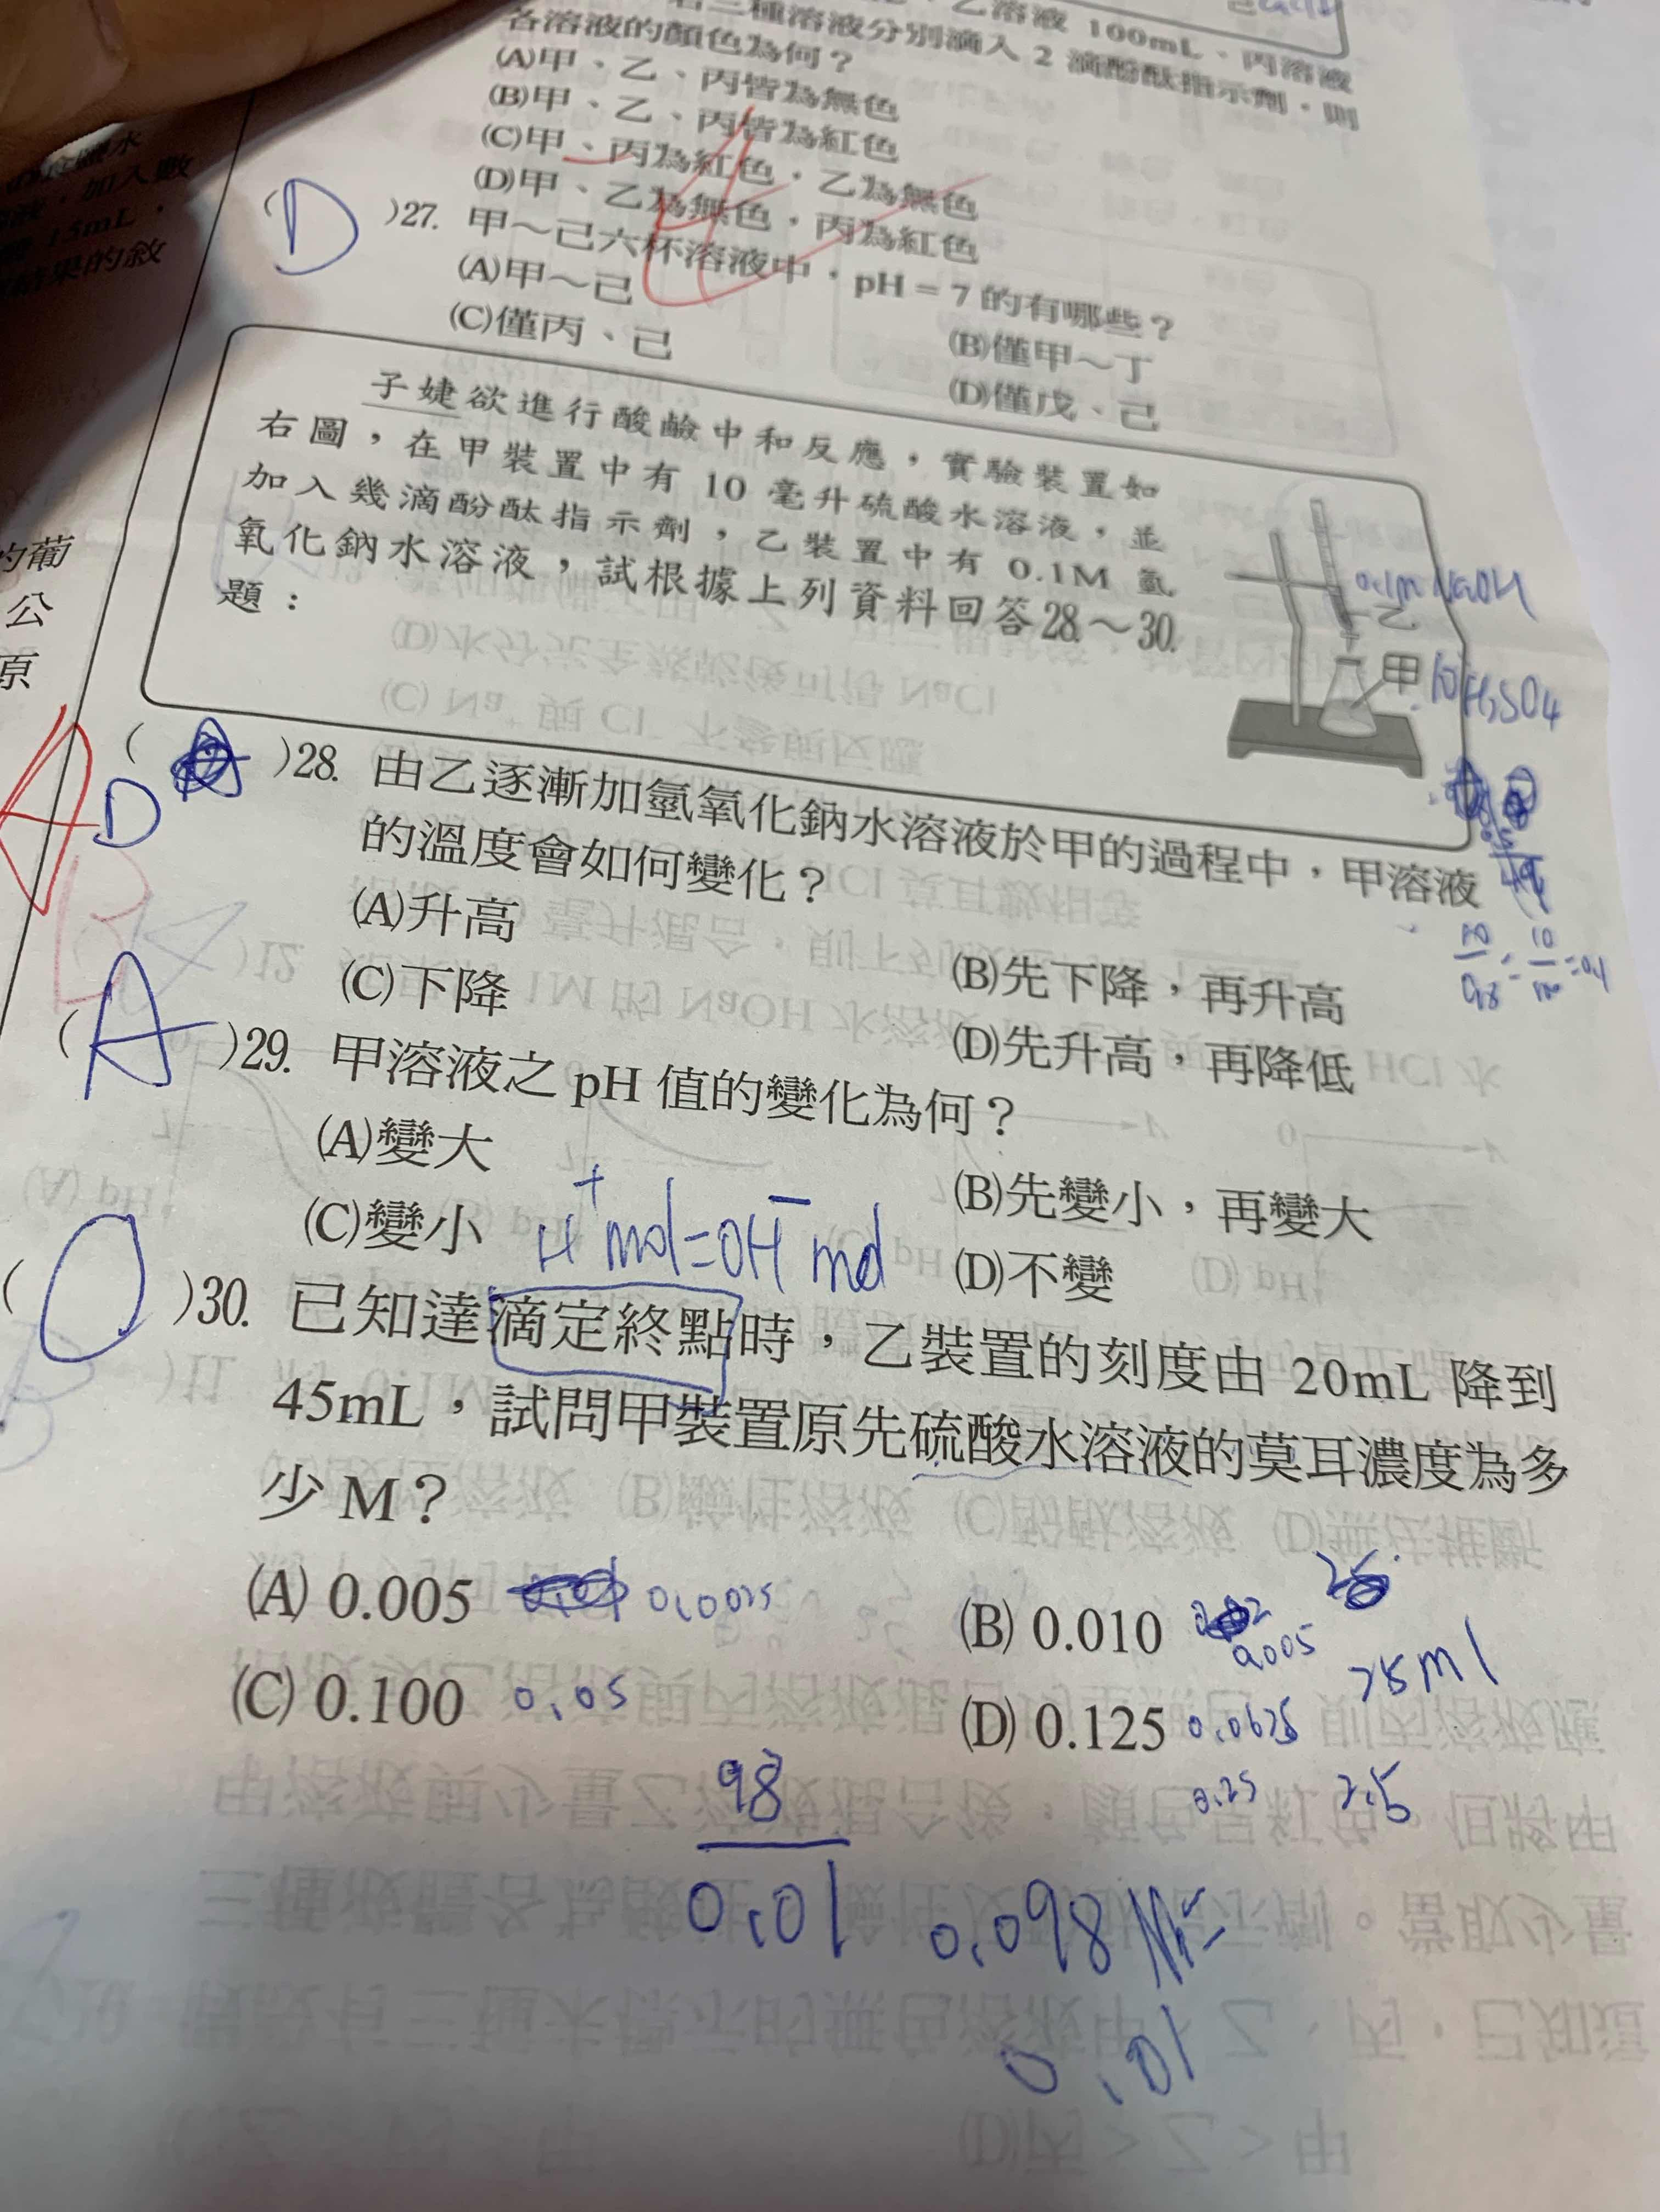 乙溶液 100mL、丙溶液
三種溶液分別滴入 2 滴酚酞指示劑,則
各溶液的顏色為何?
(A)甲、乙、丙皆為無色
(B)甲、乙、丙皆為紅色
(C)甲、丙為紅色,乙為無色
(D)甲、乙為無色,丙為紅色
A
( D )27. 甲~己六杯溶液中,pH=7 的有哪些?
(A)甲~己
(B)僅甲~丁
(C)僅丙、己
(D)僅戊、己
子婕欲進行酸鹼中和反應,實驗裝置如
右圖,在甲裝置中有 10 毫升硫酸水溶液,並
加入幾滴酚酞指示劑,乙裝置中有 0.1M 氫
氧化鈉水溶液,試根據上列資料回答28.~30.
題:
0.1M NaOH
乙
甲
10 H2SO4
A
D
( )28. 由乙逐漸加氫氧化鈉水溶液於甲的過程中,甲溶液
的溫度會如何變化?
(A)升高
(B)先下降,再升高
(C)下降
(D)先升高,再降低
( A )29. 甲溶液之 pH 值的變化為何?
(A)變大
(B)先變小,再變大
(C)變小
(D)不變
H+ mol=OH− mol
( )30. 已知達滴定終點時,乙裝置的刻度由 20mL 降到
45mL,試問甲裝置原先硫酸水溶液的莫耳濃度為多
少 M?
(A) 0.005 0.0025
(B) 0.010 0.005
25ml
(C) 0.100 0.05
(D) 0.125 0.0625
0.25 2.5
98
0.01
0.098
0.01